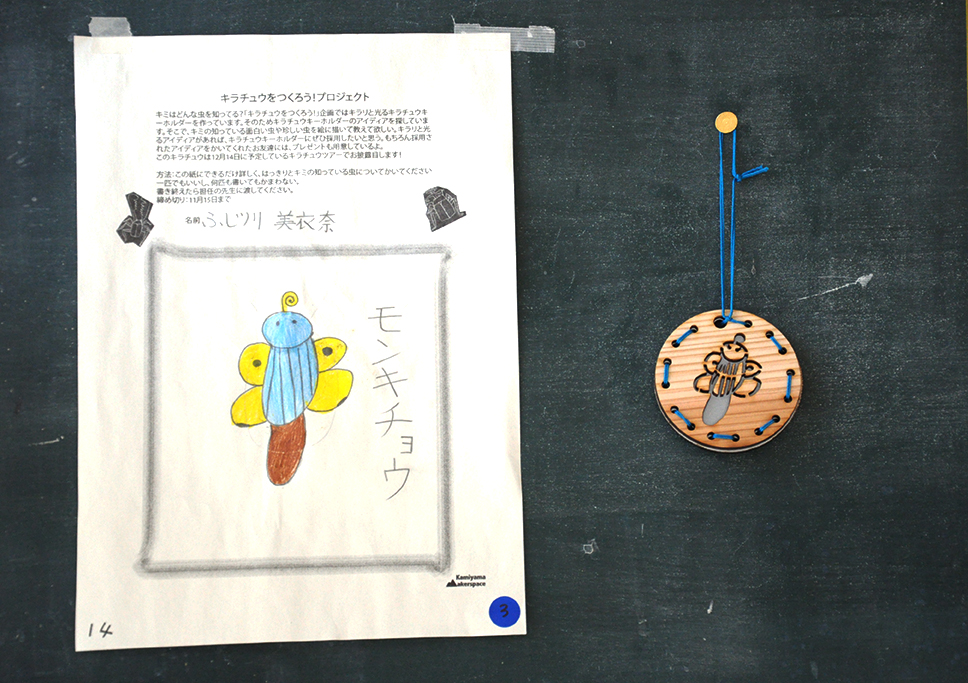 キラチュウをつくろう！プロジェクト
キミはどんな虫を知ってる？「キラチュウをつくろう！」企画ではキラリと光るキラチュウキ
ーホルダーを作っています。そのためキラチュウキーホルダーのアイディアを探していま
す。そこで、キミの知っている面白い虫や珍しい虫を絵に描いて教えて欲しい。キラリと光
るアイディアがあれば、キラチュウキーホルダーにぜひ採用したいと思う。もちろん採用さ
れたアイディアをかいてくれたお友達には、プレゼントも用意しているよ。
このキラチュウは12月14日に予定しているキラチュウツアーでお披露目します！
方法：この紙にできるだけ詳しく、はっきりとキミの知っている虫についてかいてください
一匹でもいいし、何匹も書いてもかまわない。
書き終えたら担任の先生に渡してください。
締め切り：11月15日まで
名前 ふじもり 美衣奈
モンキチョウ
Kamiyama
Makerspace
3
14